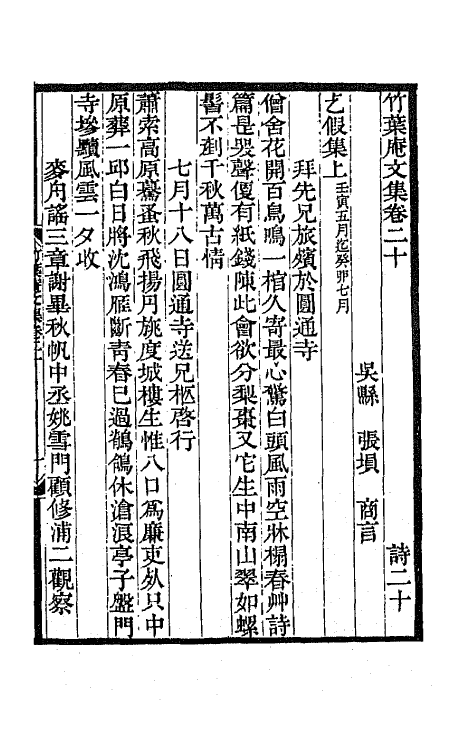 竹葉庵文集卷二十 詩二十
吳縣 張塤 商言
乞假集上 壬寅五月迄癸卯七月
拜先兄旅殯於圓通寺
僧舍花開百鳥鳴一棺久寄最心驚白頭風雨空牀榻春艸詩
篇是哭聲僾有紙錢陳此會欲分梨棗又它生中南山翠如螺
髻不剗千秋萬古情
七月十八日圓通寺送兄柩啓行
蕭索高原驚蚤秋飛揚丹旐度城樓生惟八口爲廉吏夘只中
原葬一邱白日將沈鴻雁斷靑春已過鶺鴒休滄浪亭子盤門
寺墋黷風雲一夕收
麥舟謠三章謝畢秋帆中丞姚雪門顧修浦二觀察